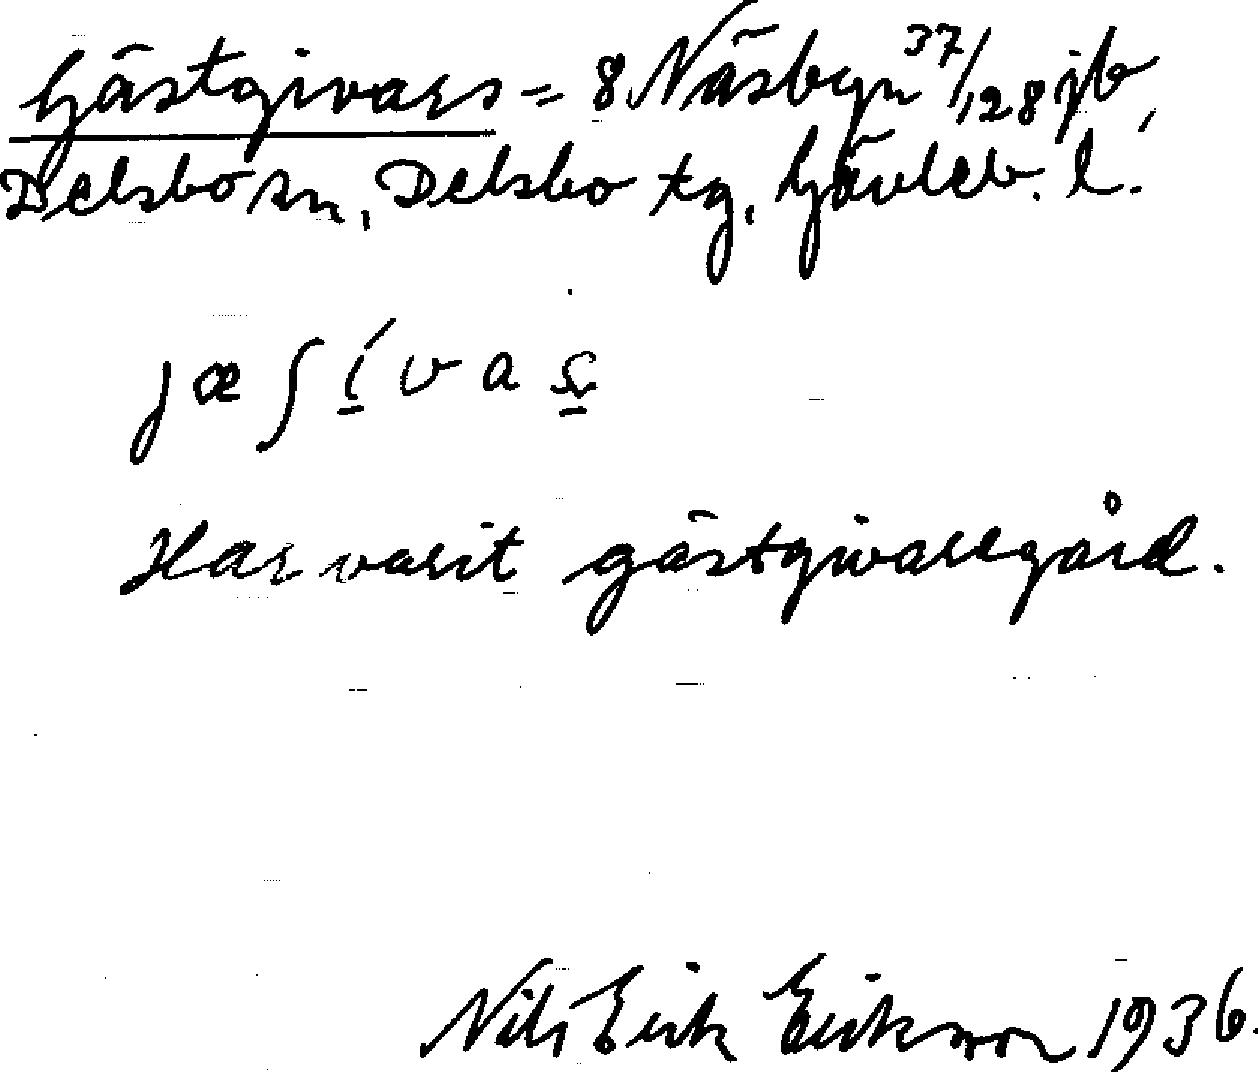 Gästgivars = 8 Näsbyn 37/128 jb,
Delsbo sn, Delsbo tg, Gävleb. l.
jæʃi̱vas̱
Har varit gästgivaregård.
Nils Erik Eriksson 1936.